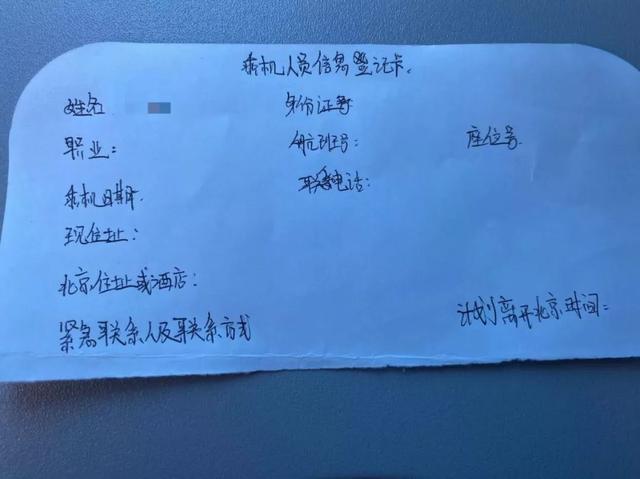 乘机人员信息登记卡。
姓名 身份证号
职业： 航班号： 座位号
乘机日期 联系电话：
现住址：
北京住址或酒店：
紧急联系人及联系方式 计划离开北京时间：